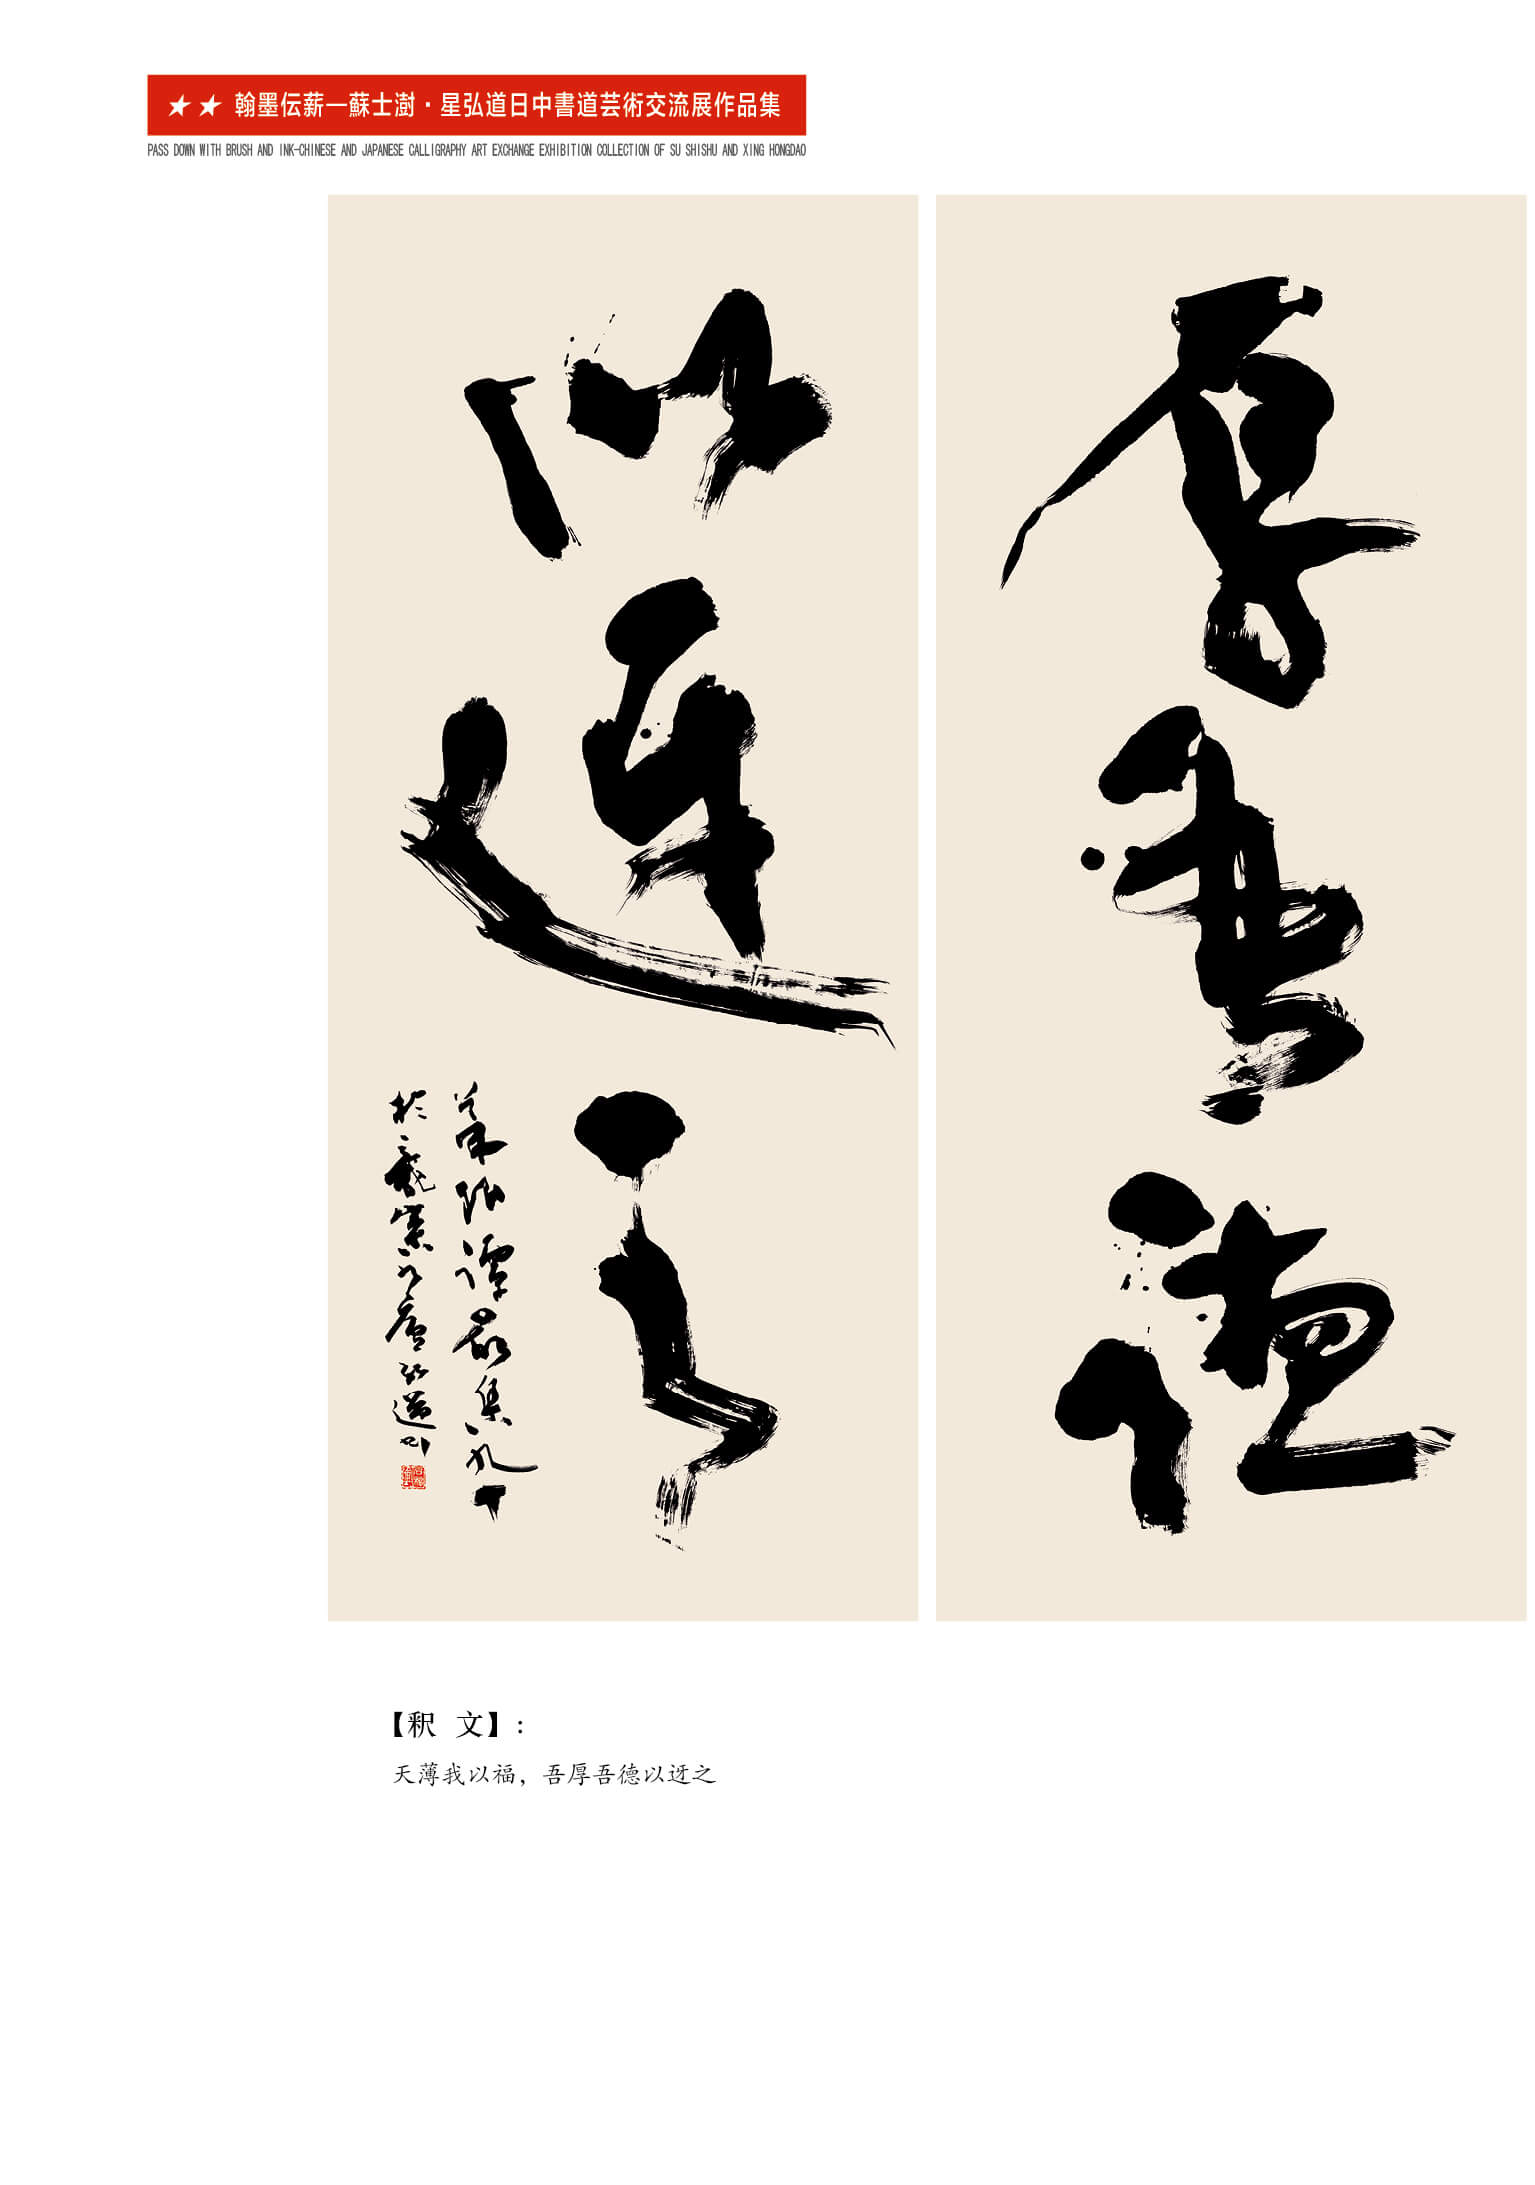 ★★ 翰墨伝薪—蘇士澍・星弘道日中書道芸術交流展作品集
PASS DOWN WITH BRUSH AND INK-CHINESE AND JAPANESE CALLIGRAPHY ART EXCHANGE EXHIBITION COLLECTION OF SU SHISHU AND XING HONGDAO
厚吾德
以迓之
【釈 文】:
天薄我以福，吾厚吾德以迓之